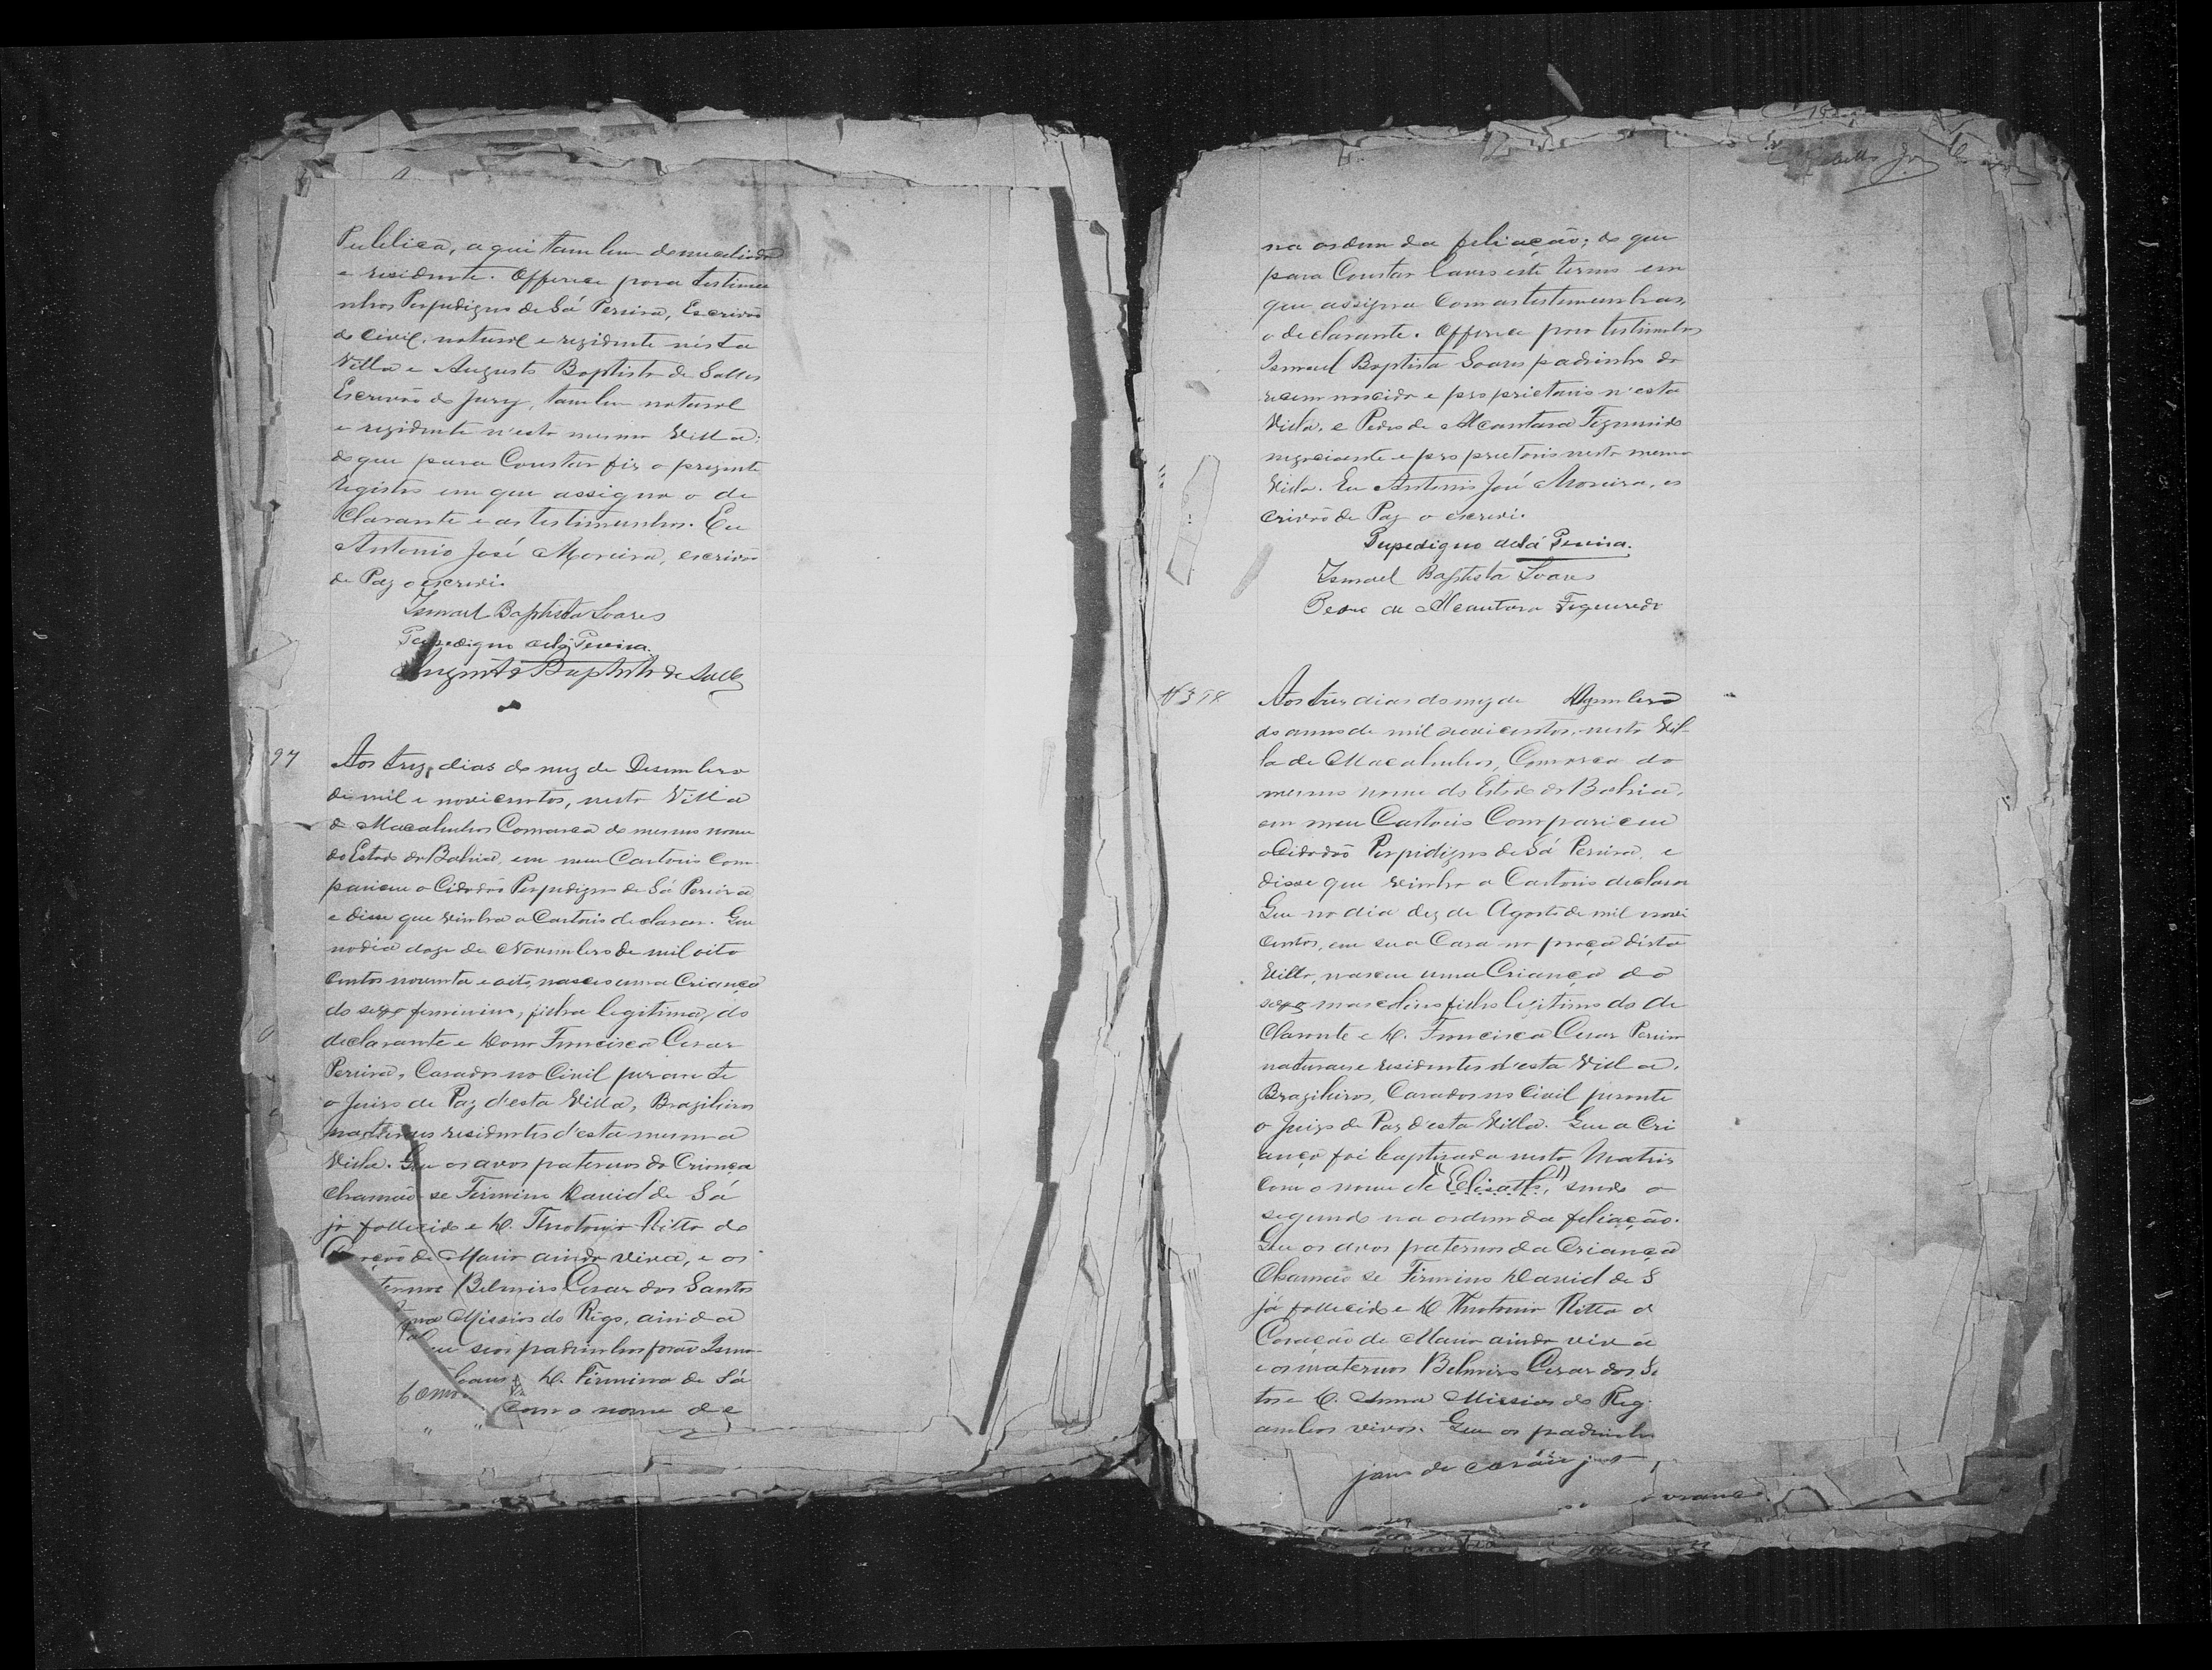 Publica, aqui tambem domiciliado
e residente. Offerece para testemu
nhas Perpedigno de Sá Pereira, Escrivão
do Civil, natural e rezidente nesta
Villa e Augusto Baptista de Salles
Escrivão do Jury, tambem natural
e rezidente n'esta mesma Villa;
do que para Constar fiz o prezente
registro em que assigna o de
Clarante e as testimunhas. Eu
Antonio José Moreira, escrivão
de Paz o escrevi.
Ismael Baptista Soares
Perpedigno de Sá Pereira.
Augusto Baptista de Salles
97
Aos trez dias do mez de Desembro
de mil e novicentos, nesta Villa
de Macahubas Comarca do mesmo nome
do Estado da Bahia, em meu Cartorio Com
pareceu o Cidadão Perpedigno de Sá Pereira
e disse que vinha a Cartorio declarar. Que
no dia doze de Novembro de mil oito
Centos noventa e oito, nasceu uma Criança
do sexo feminino, filha legitima, do
declarante e Dona Francisca Cesar
Pereira, Casados no Civil perante
o Juizo de Paz d'esta Villa, Brazileiros
residentes d'esta mesma
Villa. Que os avos paternos da Criança
Chamão-se Firmino David de Sá
já fallecido e D. Theotonia Ritta do
Coração de Maria ainda viva, e os
ternos Belmiro Cesar dos Santos
Missias do Rego, ainda
seos padrinhos forão Isma
Soares e D. Firmina de Sá
Com o nome de
na ordem da feliação; do que
para Constar lavro este termo em
que assigna Com as testemunhas,
o declarante. Offerece para testimunhas
Ismael Baptista Soares padrinho do
recem nascido e proprietario n'esta
Villa, e Pedro de Alcantara Figueiredo
negociante e proprietario nesta mesma
Villa. Eu Antonio José Moreira, es
crivão de Paz o escrevi.
Perpedigno de Sá Pereira.
Ismael Baptista Soares
Pedro de Alcantara Figueredo
Aos trez dias do mez de Dezembro
do anno de mil novicentos, nesta Vil
la de Macahubas, Comarca do
mesmo nome do Estado da Bahia,
em meu Cartorio Compareceu
o Cidadão Perpidigno de Sá Pereira, e
disse que vinha a Cartorio declarar
Que no dia dez de Agosto de mil novi
centos, em sua Casa na praça dista
Villa, nasceu uma Criança do
sexo masculino filho legitimo do de
Clarante e D. Francisca Cesar Pereira
naturaes e residentes d'esta Villa,
Brazileiros, Casados no Civil perante
o Juizo de Paz d'esta Villa. Que a Cri
ança foi baptizada nesta Matriz
com o nome de "Elisath," sendo o
segundo na ordem da feliação.
Que os avos paternos da Criança
Chamão se Firmino David de S
já fallecido e D. Theotonia Ritta d
Coração de Maria ainda viva
e os maternos Belmiro Cesar dos Sa
tos e D. Anna Missias do Reg
ambos vivos. Que os padrinho